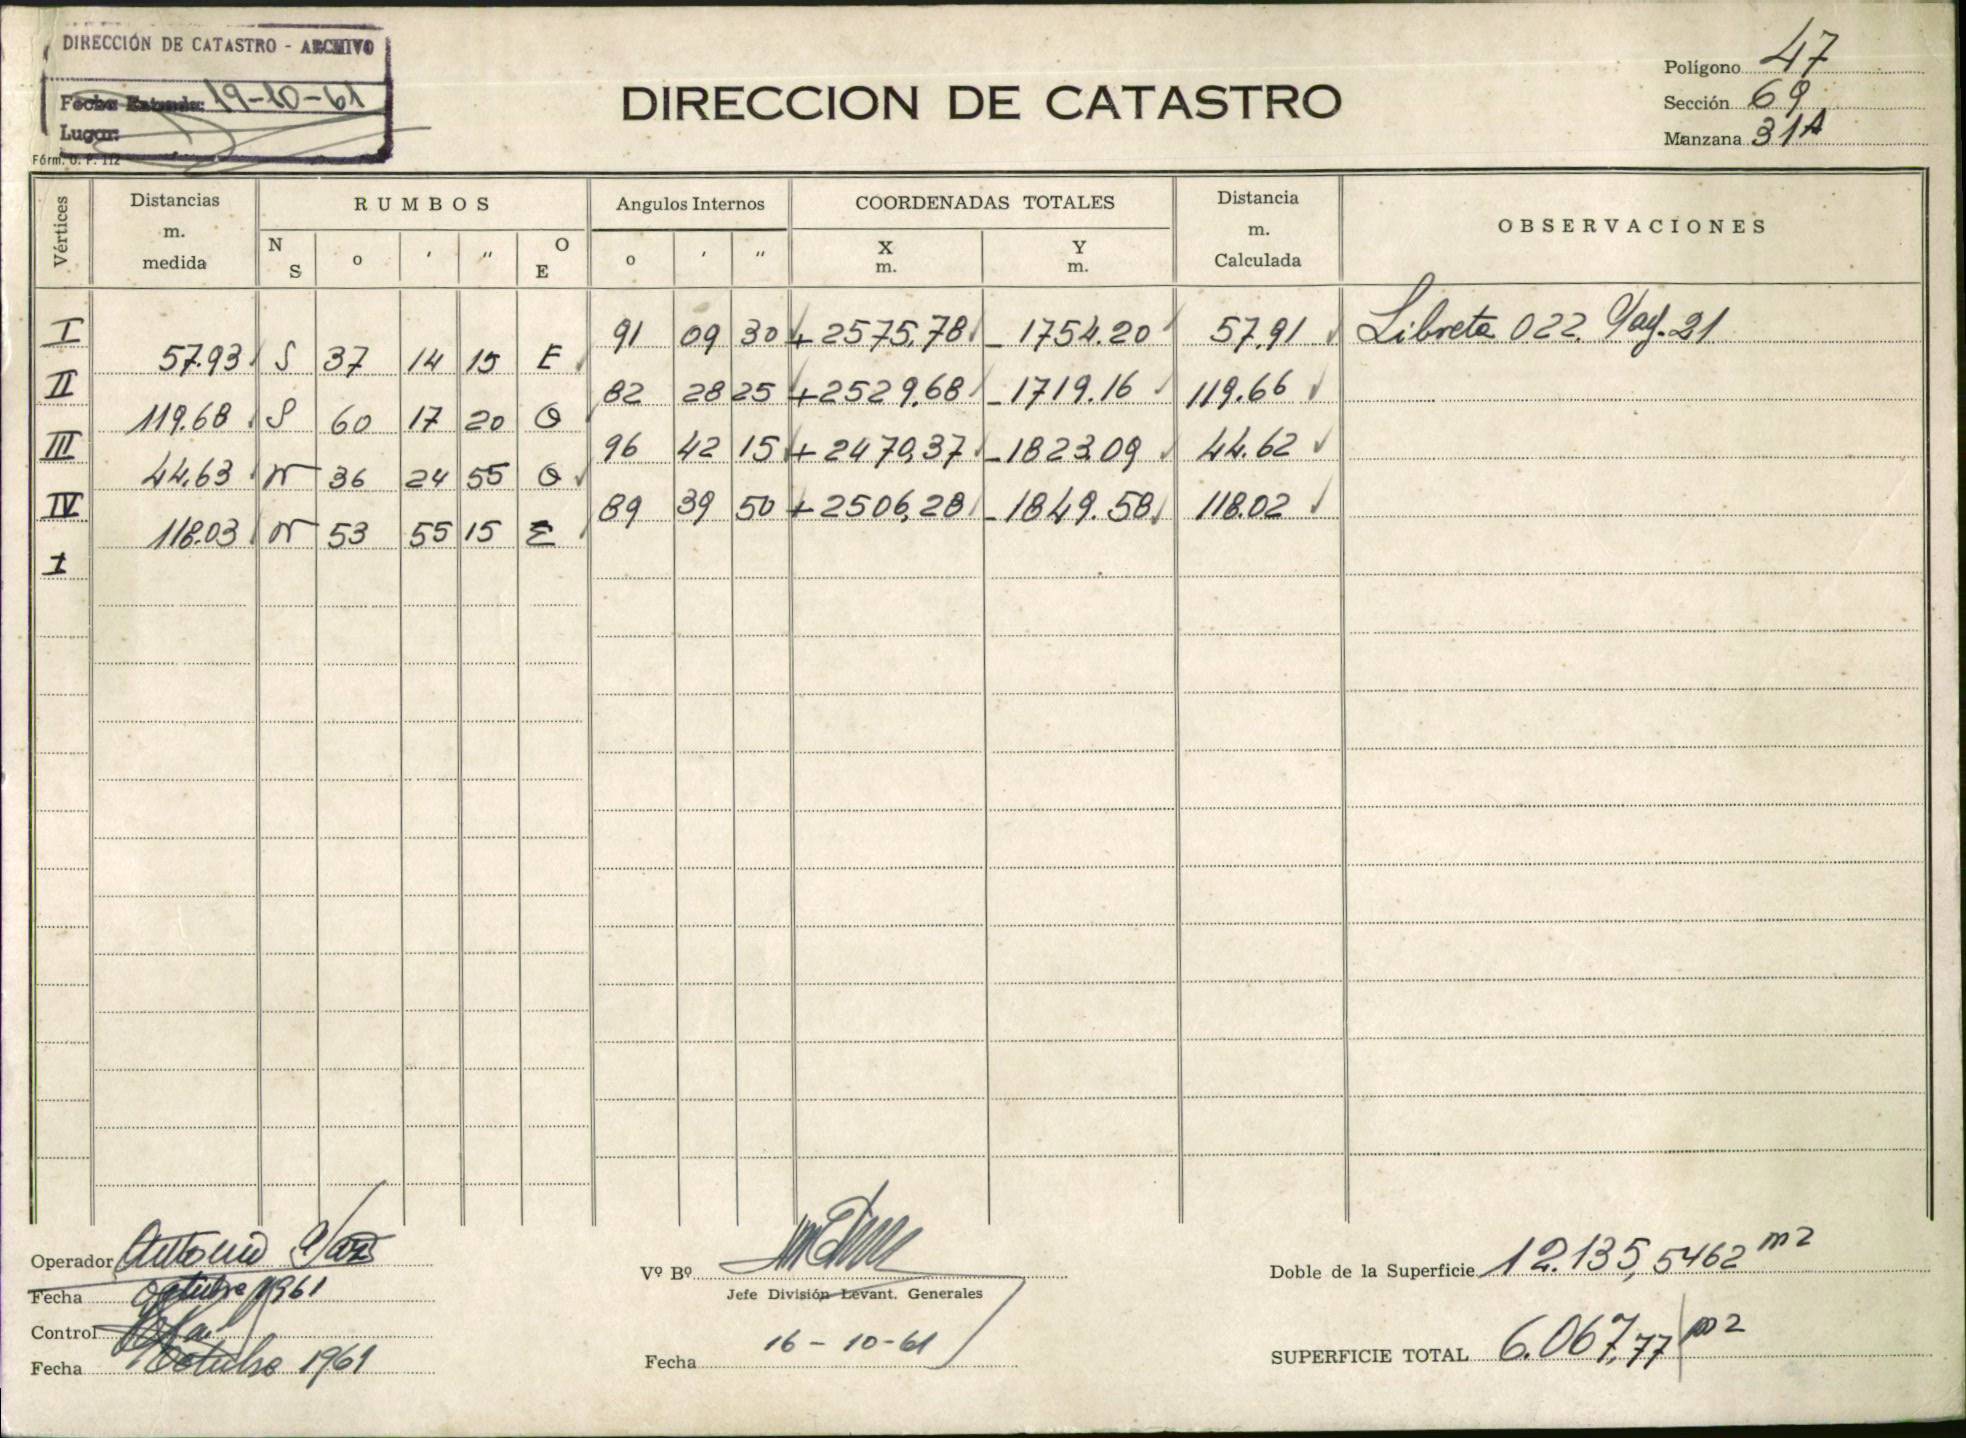 DIRECCIÓN DE CATASTRO - ARCHIVO
Fecha Entrada: 19-10-61
Lugar:
Fórm. O. P. 112
DIRECCION DE CATASTRO
Polígono 47
Sección 69
Manzana 31A
Vértices Distancias m. medida RUMBOS N S o ' " O E Angulos Internos o ' " COORDENADAS TOTALES X m. Y m. Distancia m. Calculada OBSERVACIONES
I 91 09 30 +2575,78 -1754.20 57,91 Libreta 022. Pag. 21
57.93 S 37 14 15 E
II 82 28 25 +2529,68 -1719.16 119.66
119.68 S 60 17 20 O
III 96 42 15 +2470,37 -1823.09 44.62
44,63 N 36 24 55 O
IV 89 39 50 +2506,28 -1849.58 118.02
118.03 N 53 55 15 E
I
Operador Antonio
Fecha Octubre 1961
Control
Fecha Octubre 1961
Vº Bº
Jefe División Levant. Generales
Fecha 16-10-61
Doble de la Superficie 12.135,5462 m2
SUPERFICIE TOTAL 6.067,77 m2